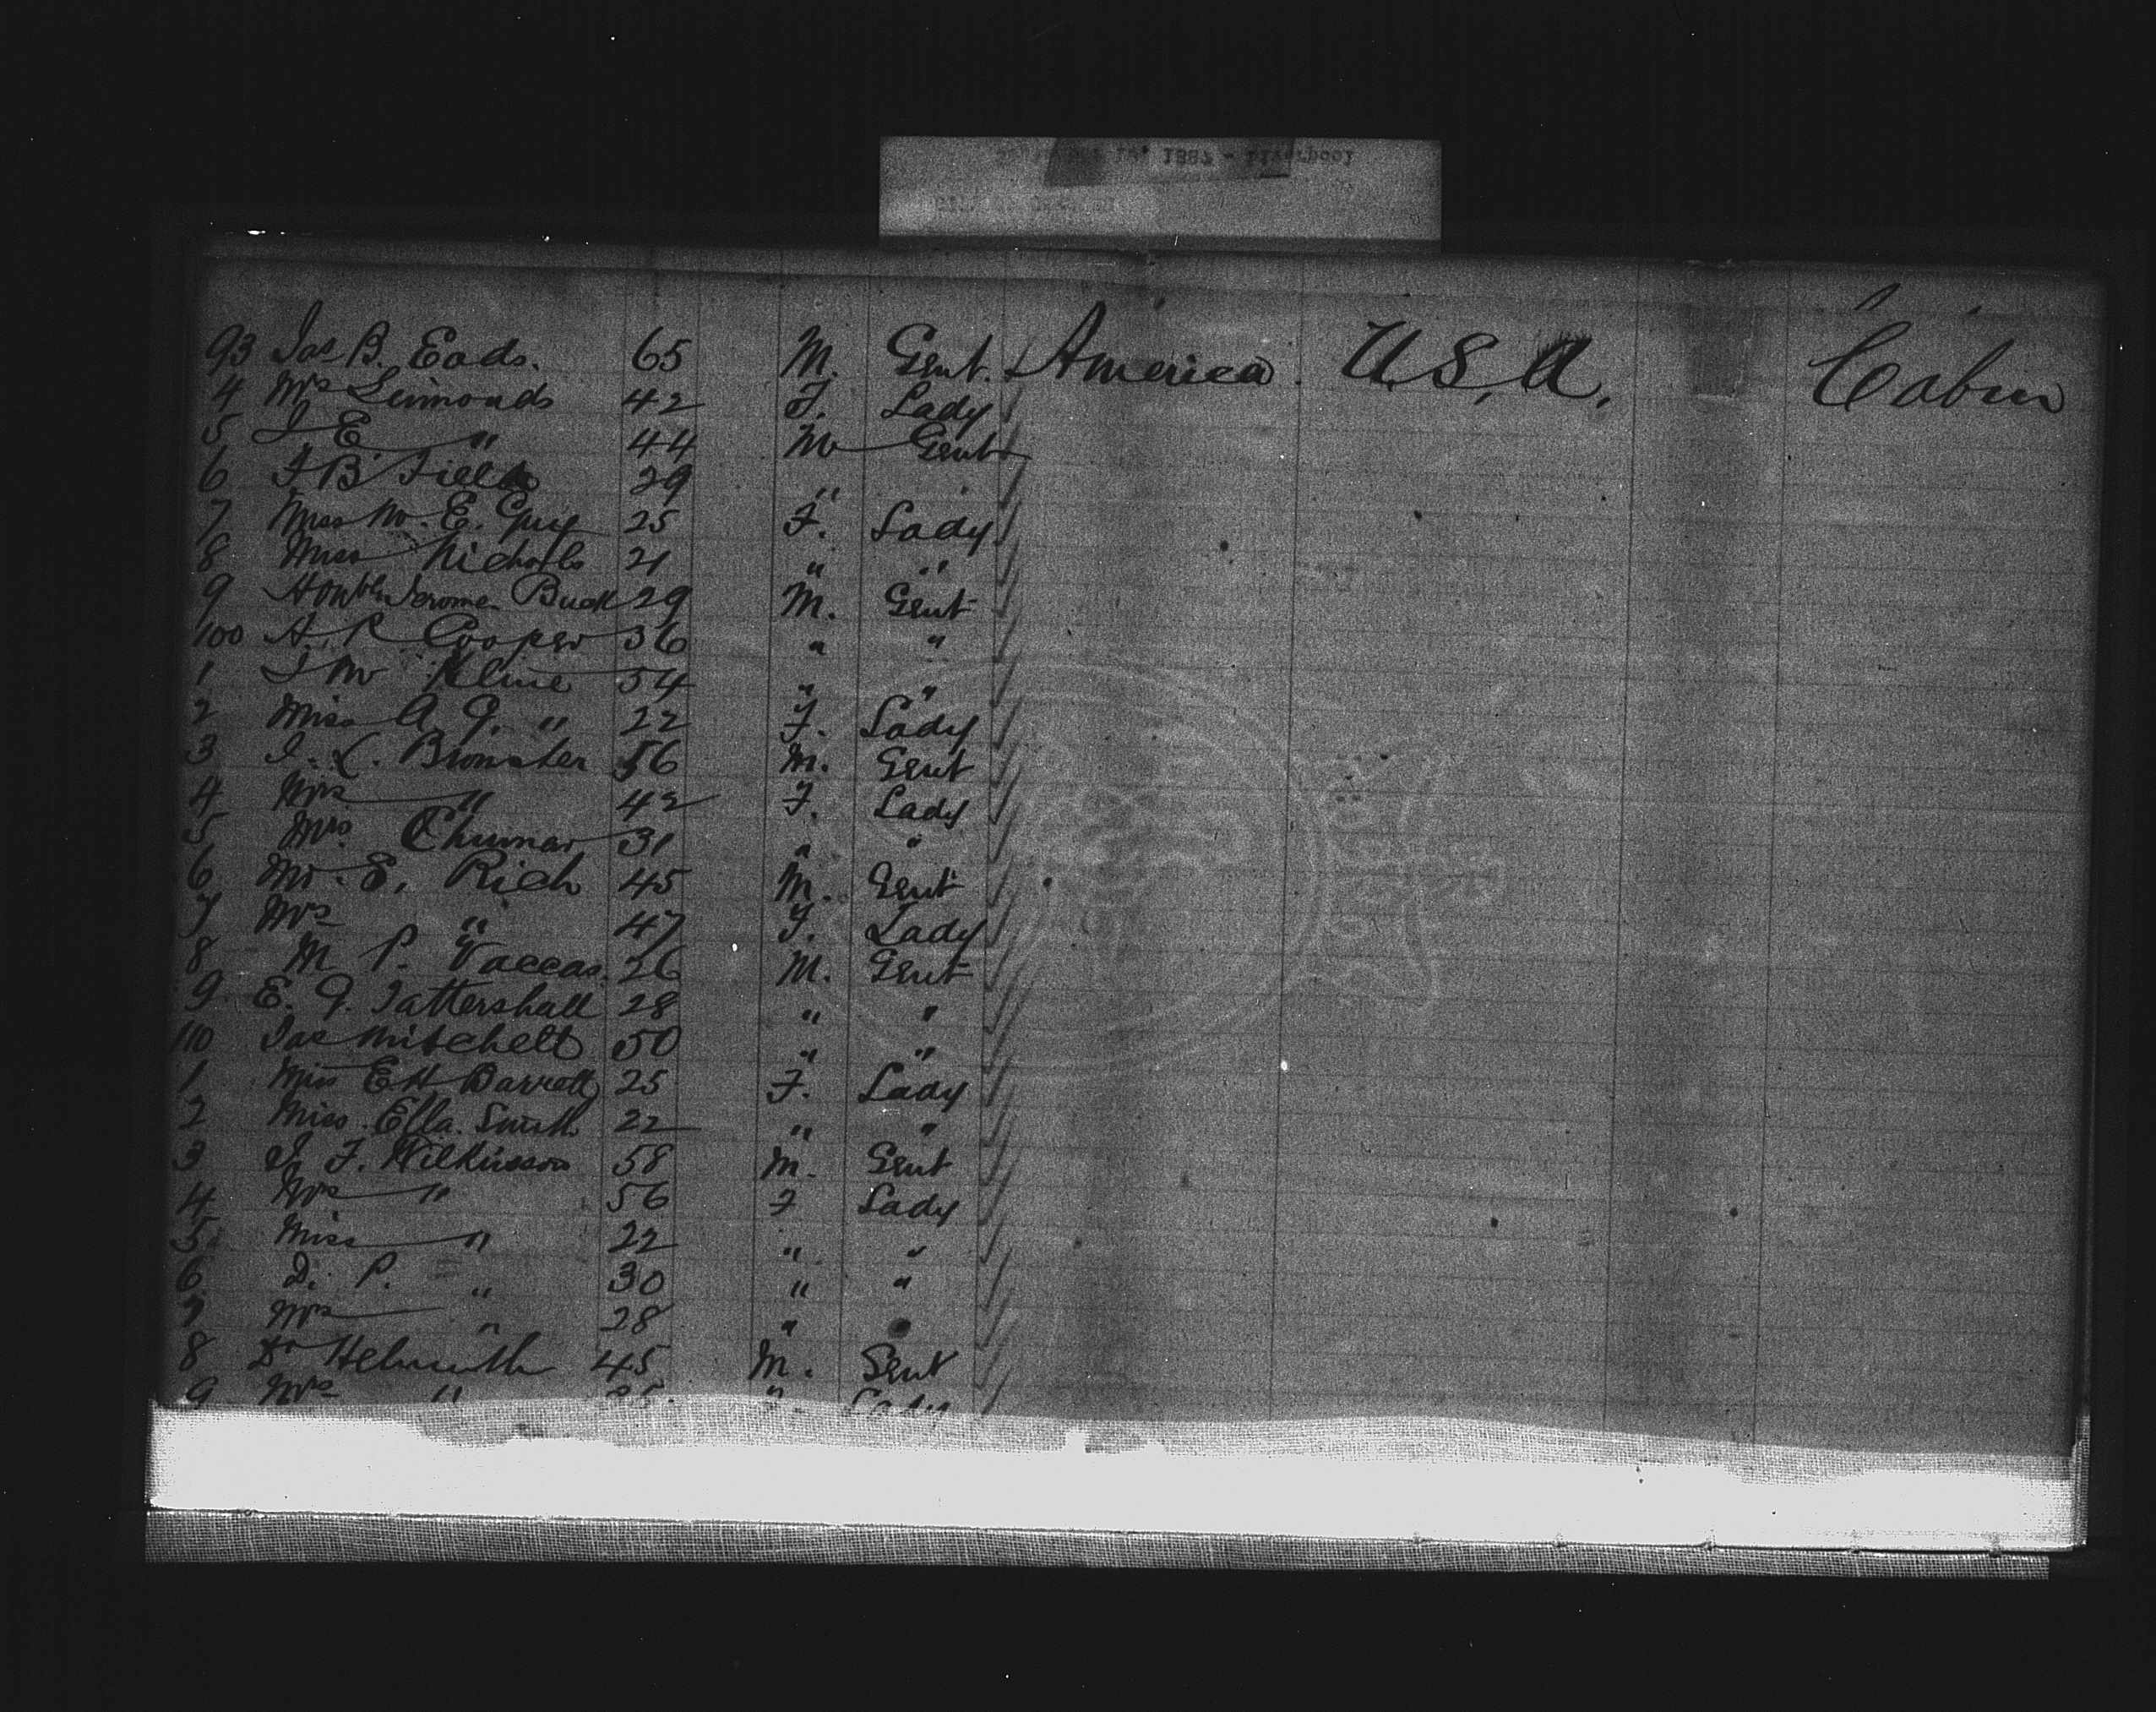 93 Jas B. Eads. 65 M. Gent. America. U.S.A. Cabin
4 Mrs Simonds 42 F. Lady
5 J E " 44 M Gent
6 F B Field 29 "
7 Miss M. E. Guy 25 F. Lady
8 Miss Nicholls 21 " "
9 Honble Jerome Buck 29 M. Gent
100 A. R. Cooper 36 " "
1 J M Kline 54 " "
2 Miss A. G. " 22 F. Lady
3 J. L. 56 M. Gent
4 Mrs " 42 F. Lady
5 Mrs. 31 " "
6 Mr. E. Rich 45 M. Gent
7 Mrs " 47 F. Lady
8 M P. Vaccas. 26 M. Gent
9 E. G. Tattershall 28 " "
110 Jas Mitchell 50 " "
1 Miss E H Barrett 25 F. Lady
2 Miss Ella Smith 22 " "
3 J. F. Wilkinson 58 M. Gent
4 Mrs " 56 F Lady
5 Miss " 22 " "
6 D. P. " 30 " "
7 Mrs " 28 "
8 Dr Helmuth 45 M. Gent
9 Mrs " Lady